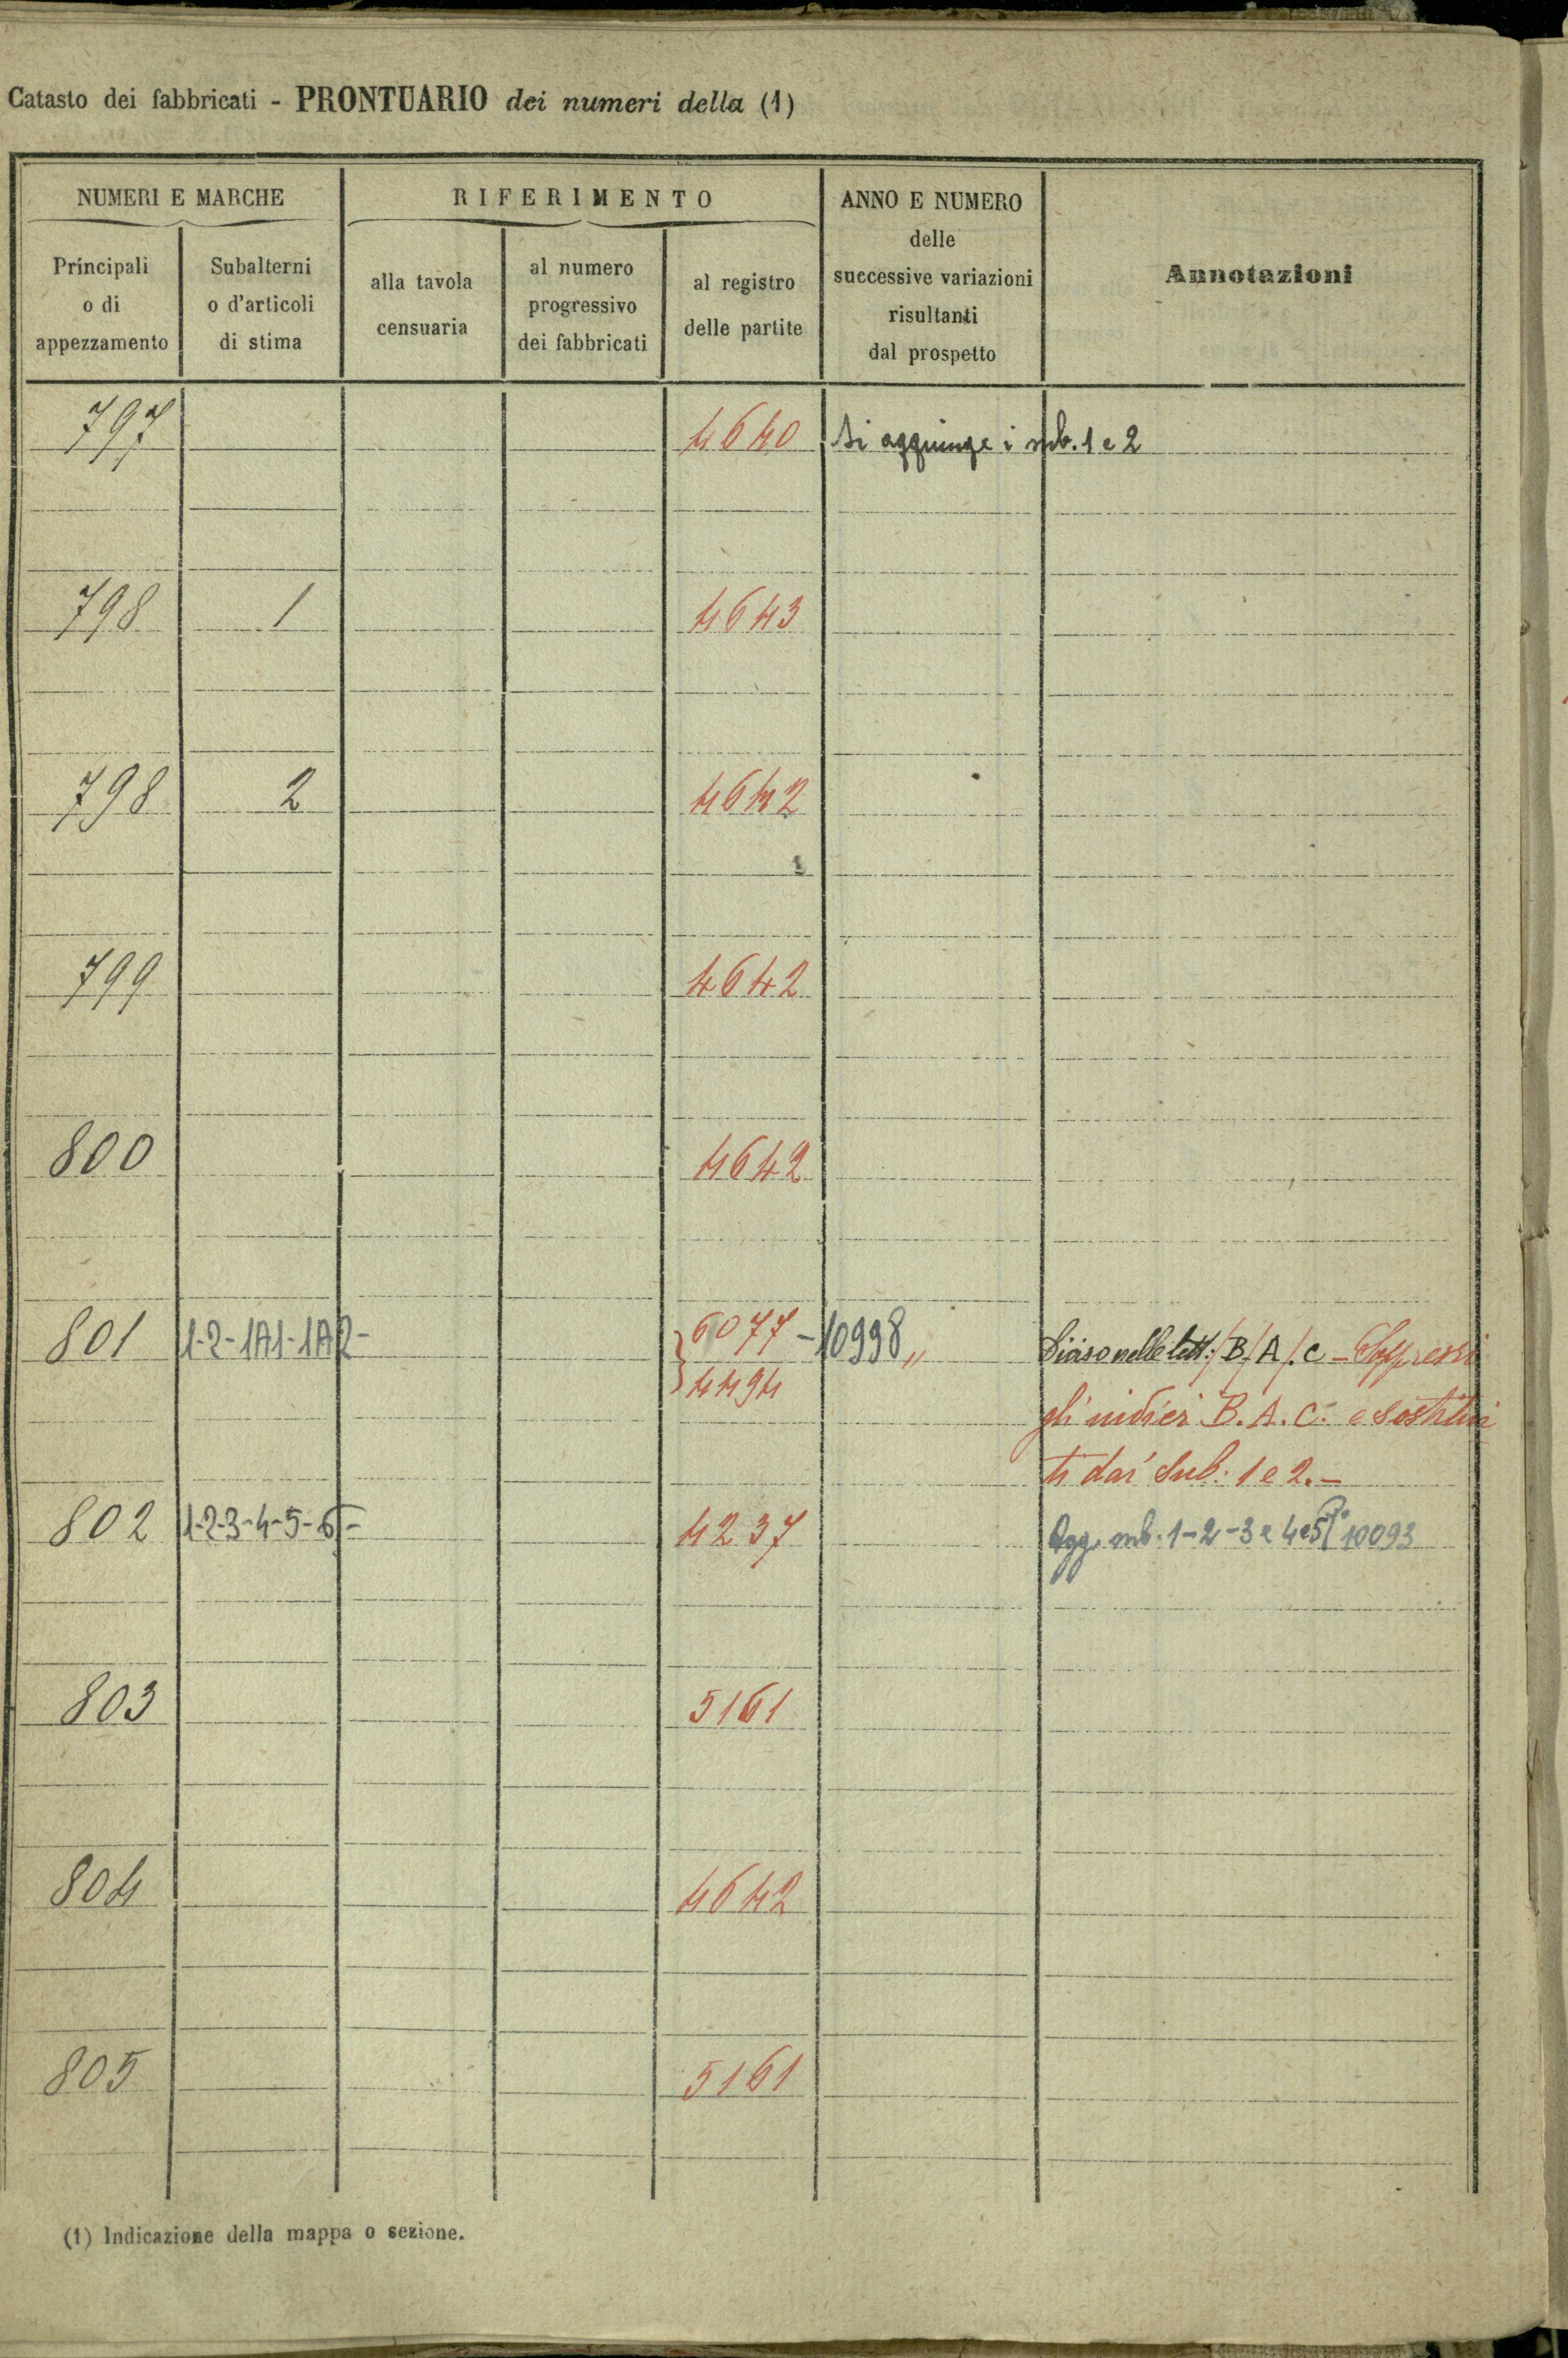 Catasto dei fabbricati - PRONTUARIO dei numeri della (1)
NUMERI E MARCHE
RIFERIMENTO
ANNO E NUMERO
delle
successive variazioni
risultanti
dal prospetto
Annotazioni
Principali
o di
appezzamento
Subalterni
o d'articoli
di stima
alla tavola
censuaria
al numero
progressivo
dei fabbricati
al registro
delle partite
797 4640 Si aggiunge i sub. 1 e 2
798 1 4643
798 2 4642
799 4642
800 4642
801 1-2-1A1-1A2- 6077 - 10998 „ nelle lett: B/A/.C - Soppressi
4494 gli indici B.A.C. e sostitui
ti dai Sub: 1 e 2.-
802 1-2-3-4-5-6- 4237 Agg. sub. 1-2-3 e 4 e 5 10093
803 5161
804 4642
805 5161
(1) Indicazione della mappa o sezione.